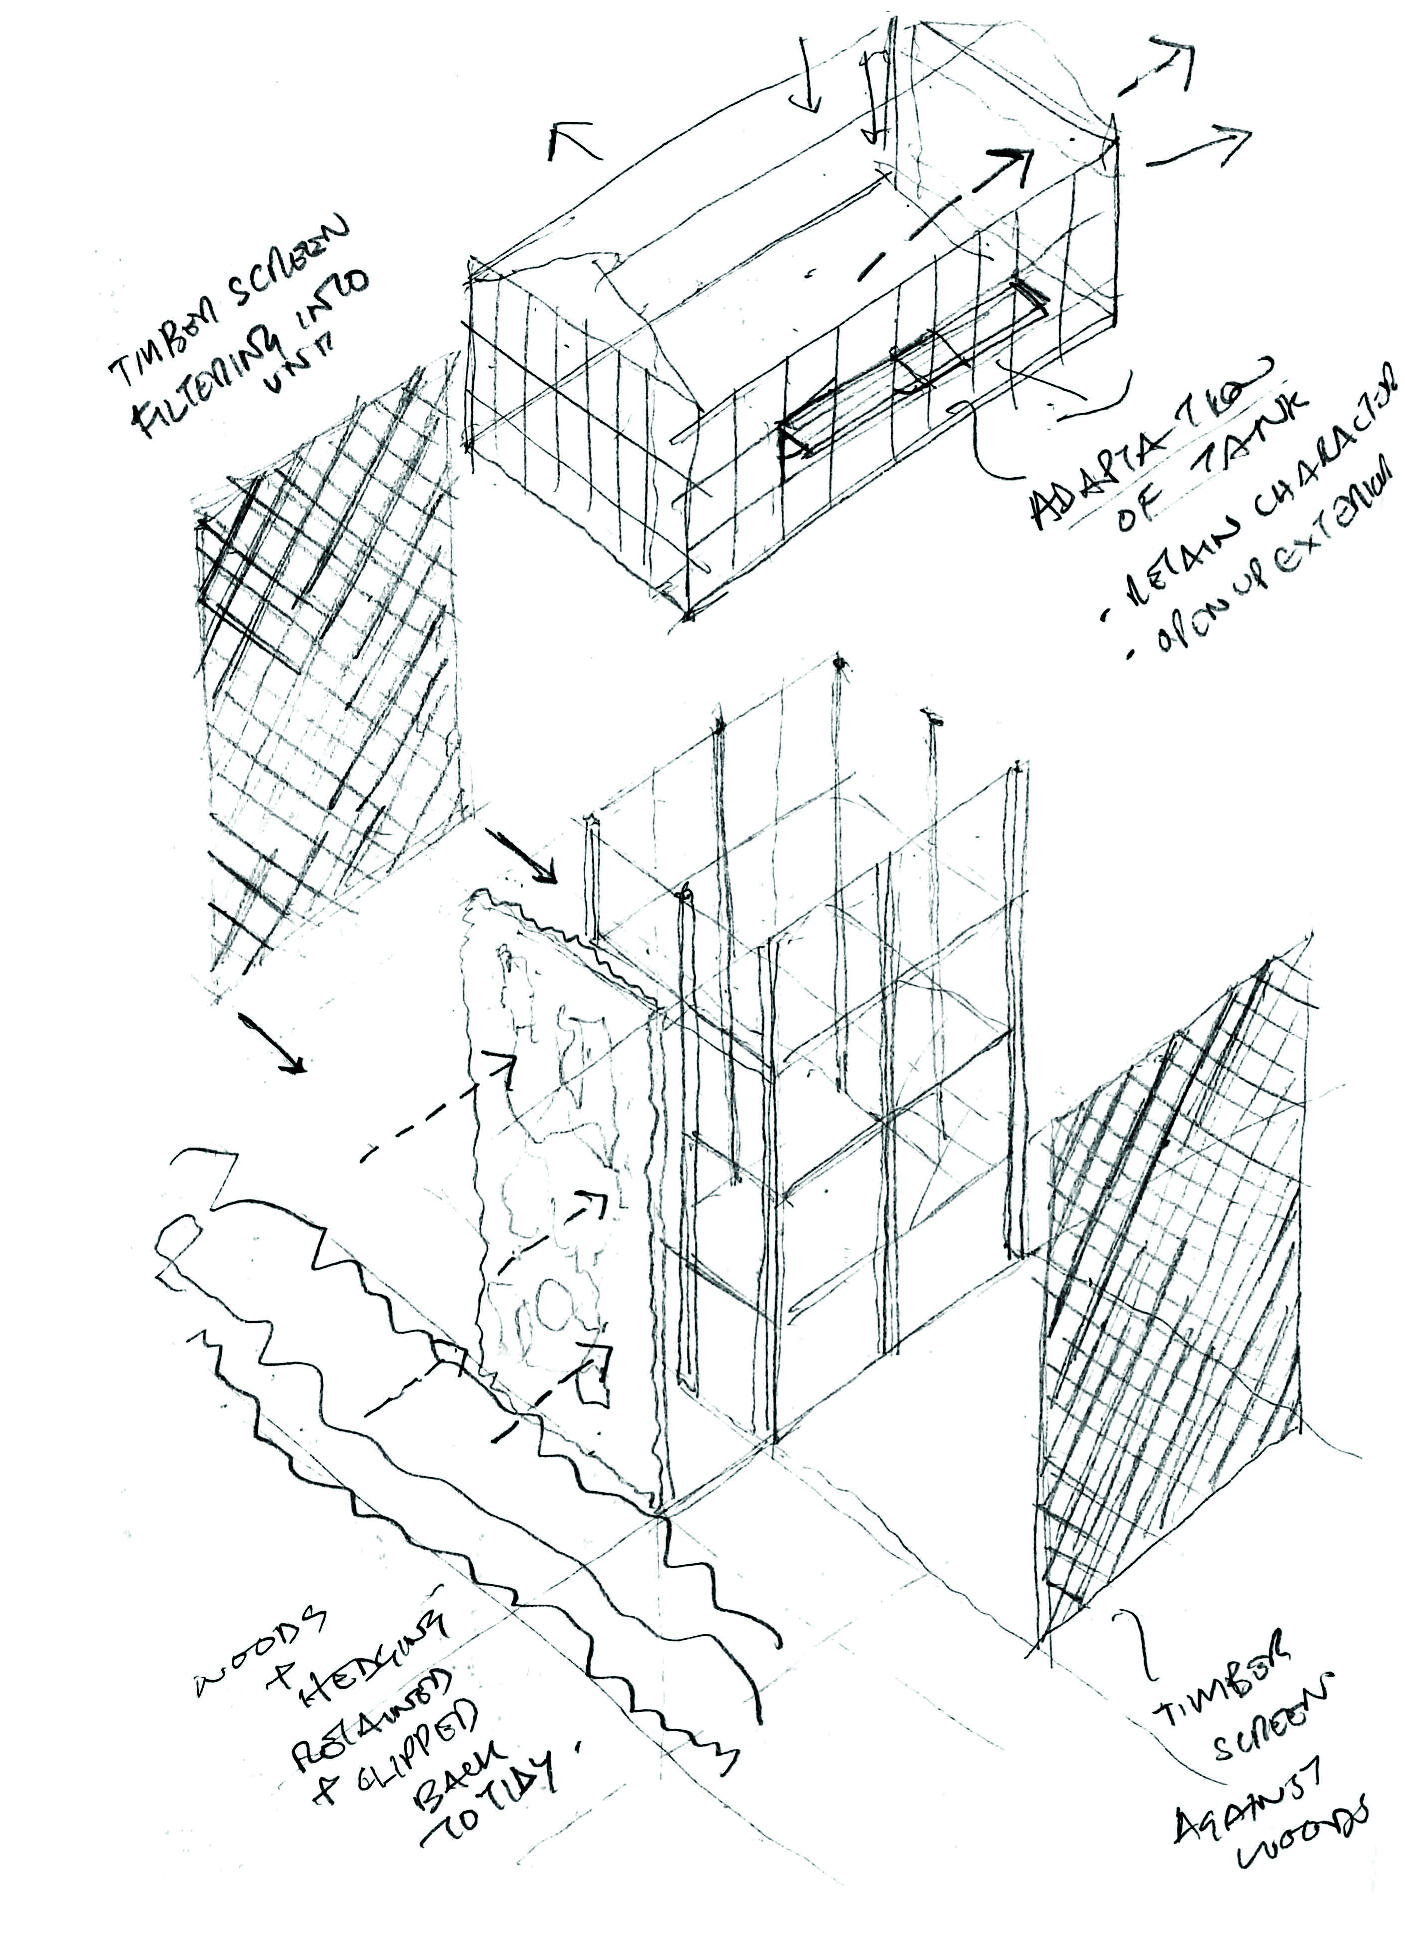 TIMBER SCREEN
FILTERING INTO
UNIT
ADAPTATION
OF TANK
- RETAIN CHARACTER
- OPEN UP EXTERIOR
WOODS
+ HEDGING
RETAINED
+ CLIPPED
BACK
TO TIDY.
TIMBER
SCREEN
AGAINST
WOODS